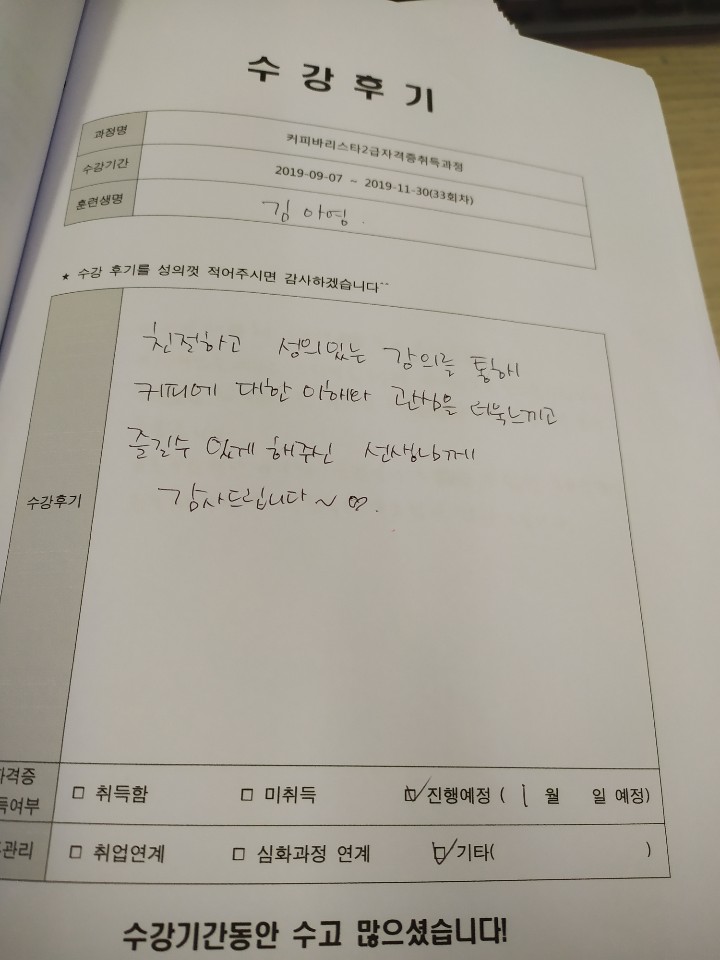 수강후기
과정명 커피바리스타2급자격증취득과정
수강기간 2019-09-07 ~ 2019-11-30(33회차)
훈련생명 김아영.
★ 수강 후기를 성의껏 적어주시면 감사하겠습니다^^
친절하고 성의있는 강의를 통해
커피에 대한 이해와 관심을 더욱느끼고
즐길수 있게 해주신 선생님께
수강후기
감사드립니다~♡.
자격증
득여부
□ 취득함 □ 미취득 ☑ 진행예정 ( 1 월 일 예정)
관리 □ 취업연계 □ 심화과정 연계 ☑ 기타( )
수강기간동안 수고 많으셨습니다!